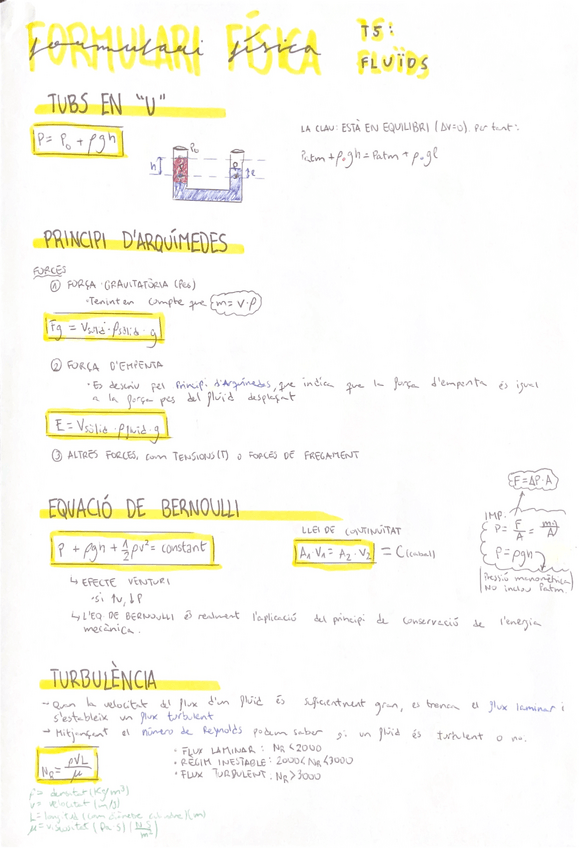 FORMULARI FÍSICA
formulari física
T5:
FLUÏDS
TUBS EN "U"
P = P₀ + ρgh
P₀
h
l
LA CLAU: ESTÀ EN EQUILIBRI (ΔV=0). Per tant:
Patm + ρ₀gh = Patm + ρ₀gl
PRINCIPI D'ARQUÍMEDES
FORCES
① FORÇA GRAVITATÒRIA (Pes)
· Tenint en compte que m = V·ρ
Fg = Vsòlid · ρsòlid · g
② FORÇA D'EMPENTA
· Es descriu pel Principi d'Arquímedes, que indica que la força d'empenta és igual
a la força pes del fluid desplaçat
E = Vsòlid · ρfluid · g
③ ALTRES FORCES, com TENSIONS (T) o FORCES DE FREGAMENT
EQUACIÓ DE BERNOULLI
P + ρgh + ½ρv² = constant
↳ EFECTE VENTURI
· si ↑v, ↓P
↳ L'EQ DE BERNOULLI és realment l'aplicació del principi de conservació de l'energia
mecànica.
LLEI DE CONTINUÏTAT
A₁·V₁ = A₂·V₂ = C (cabal)
F = ΔP·A
IMP:
P = F/A = m·g/A
P = ρgh
Pressió manomètrica
No inclou Patm
TURBULÈNCIA
→ Quan la velocitat del flux d'un fluid és suficientment gran, es trenca el flux laminar i
s'estableix un flux turbulent
→ Mitjançant el número de Reynolds podem saber si un fluid és turbulent o no.
N_R = ρVL/μ
· FLUX LAMINAR: N_R < 2000
· RÈGIM INESTABLE: 2000 < N_R < 3000
· FLUX TURBULENT: N_R > 3000
ρ = densitat (Kg/m³)
v = velocitat (m/s)
L = longitud (com diàmetre cilindre) (m)
μ = viscositat (Pa·s) (N·s/m²)